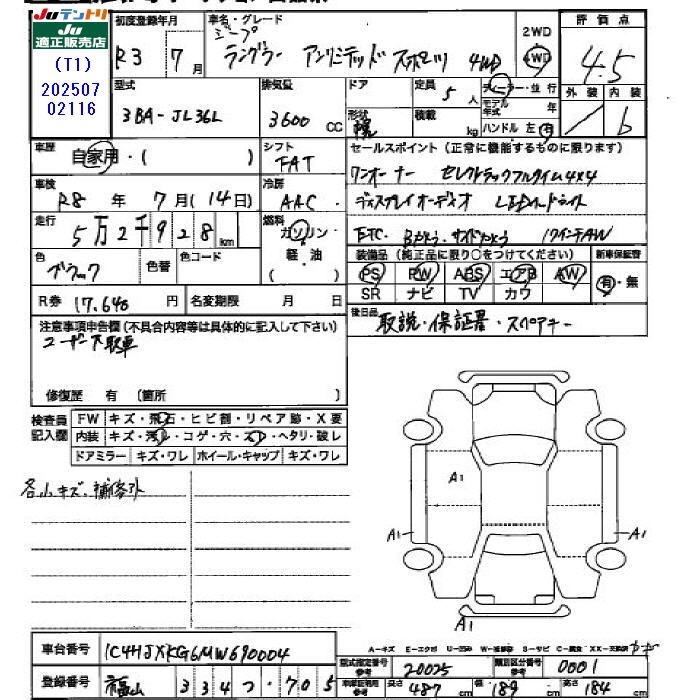 JU テントリ
JU
適正販売店
(T1)
202507
02116
初度登録年月
R3 7月
車名・グレード
ジープ
ラングラー アンリミテッド スポーツ 4WD
2WD
4WD
評価点
4.5
外装 内装
/ b
型式
3BA-JL36L
排気量
3600 CC
ドア
形状
幌
定員
5人
積載
kg
ディーラー・並行
モデル年式 年
ハンドル 左 右
車歴
自家用・( )
シフト
FAT
セールスポイント(正常に機能するものに限ります)
ワンオーナー セレクトラックフルタイム4x4
ディスプレイオーディオ LEDヘッドライト
ETC. Bカメラ・サイドカメラ 17インチAW
車検
R8年 7月(14日)
冷房
AAC
走行
5万2千928km
燃料
ガソリン・
軽油
( )
色
ブラック
色替
色コード
装備品(純正品に限り○をつけてください)
PS PW ABS エアB AW
SR ナビ TV カワ
新車保証書
有・無
R券 17.640円
名変期限 月 日
後日品
取説・保証書・スペアキー
注意事項申告欄(不具合内容等は具体的に記入して下さい)
ユーザー買取車
修復歴 有 〔箇所 〕
検査員
記入欄
FW キズ・飛石・ヒビ割・リペア跡・X要
内装 キズ・汚れ・コゲ・穴・スレ・ヘタリ・破レ
ドアミラー キズ・ワレ ホイール・キャップ キズ・ワレ
各小キズ、補修ヶ所
A1
A1 A1
A1
車台番号 1C4HJXKG6MW690004
登録番号 福山 334 つ・705
A-キズ E-エクボ U-凹み W-補修跡 S-サビ C-腐食 XX-交換済
型式指定番号
参考 20025
類別区分番号
参考 0001
車体証明書用
参考 長さ 487cm 幅 189cm 高さ 184cm